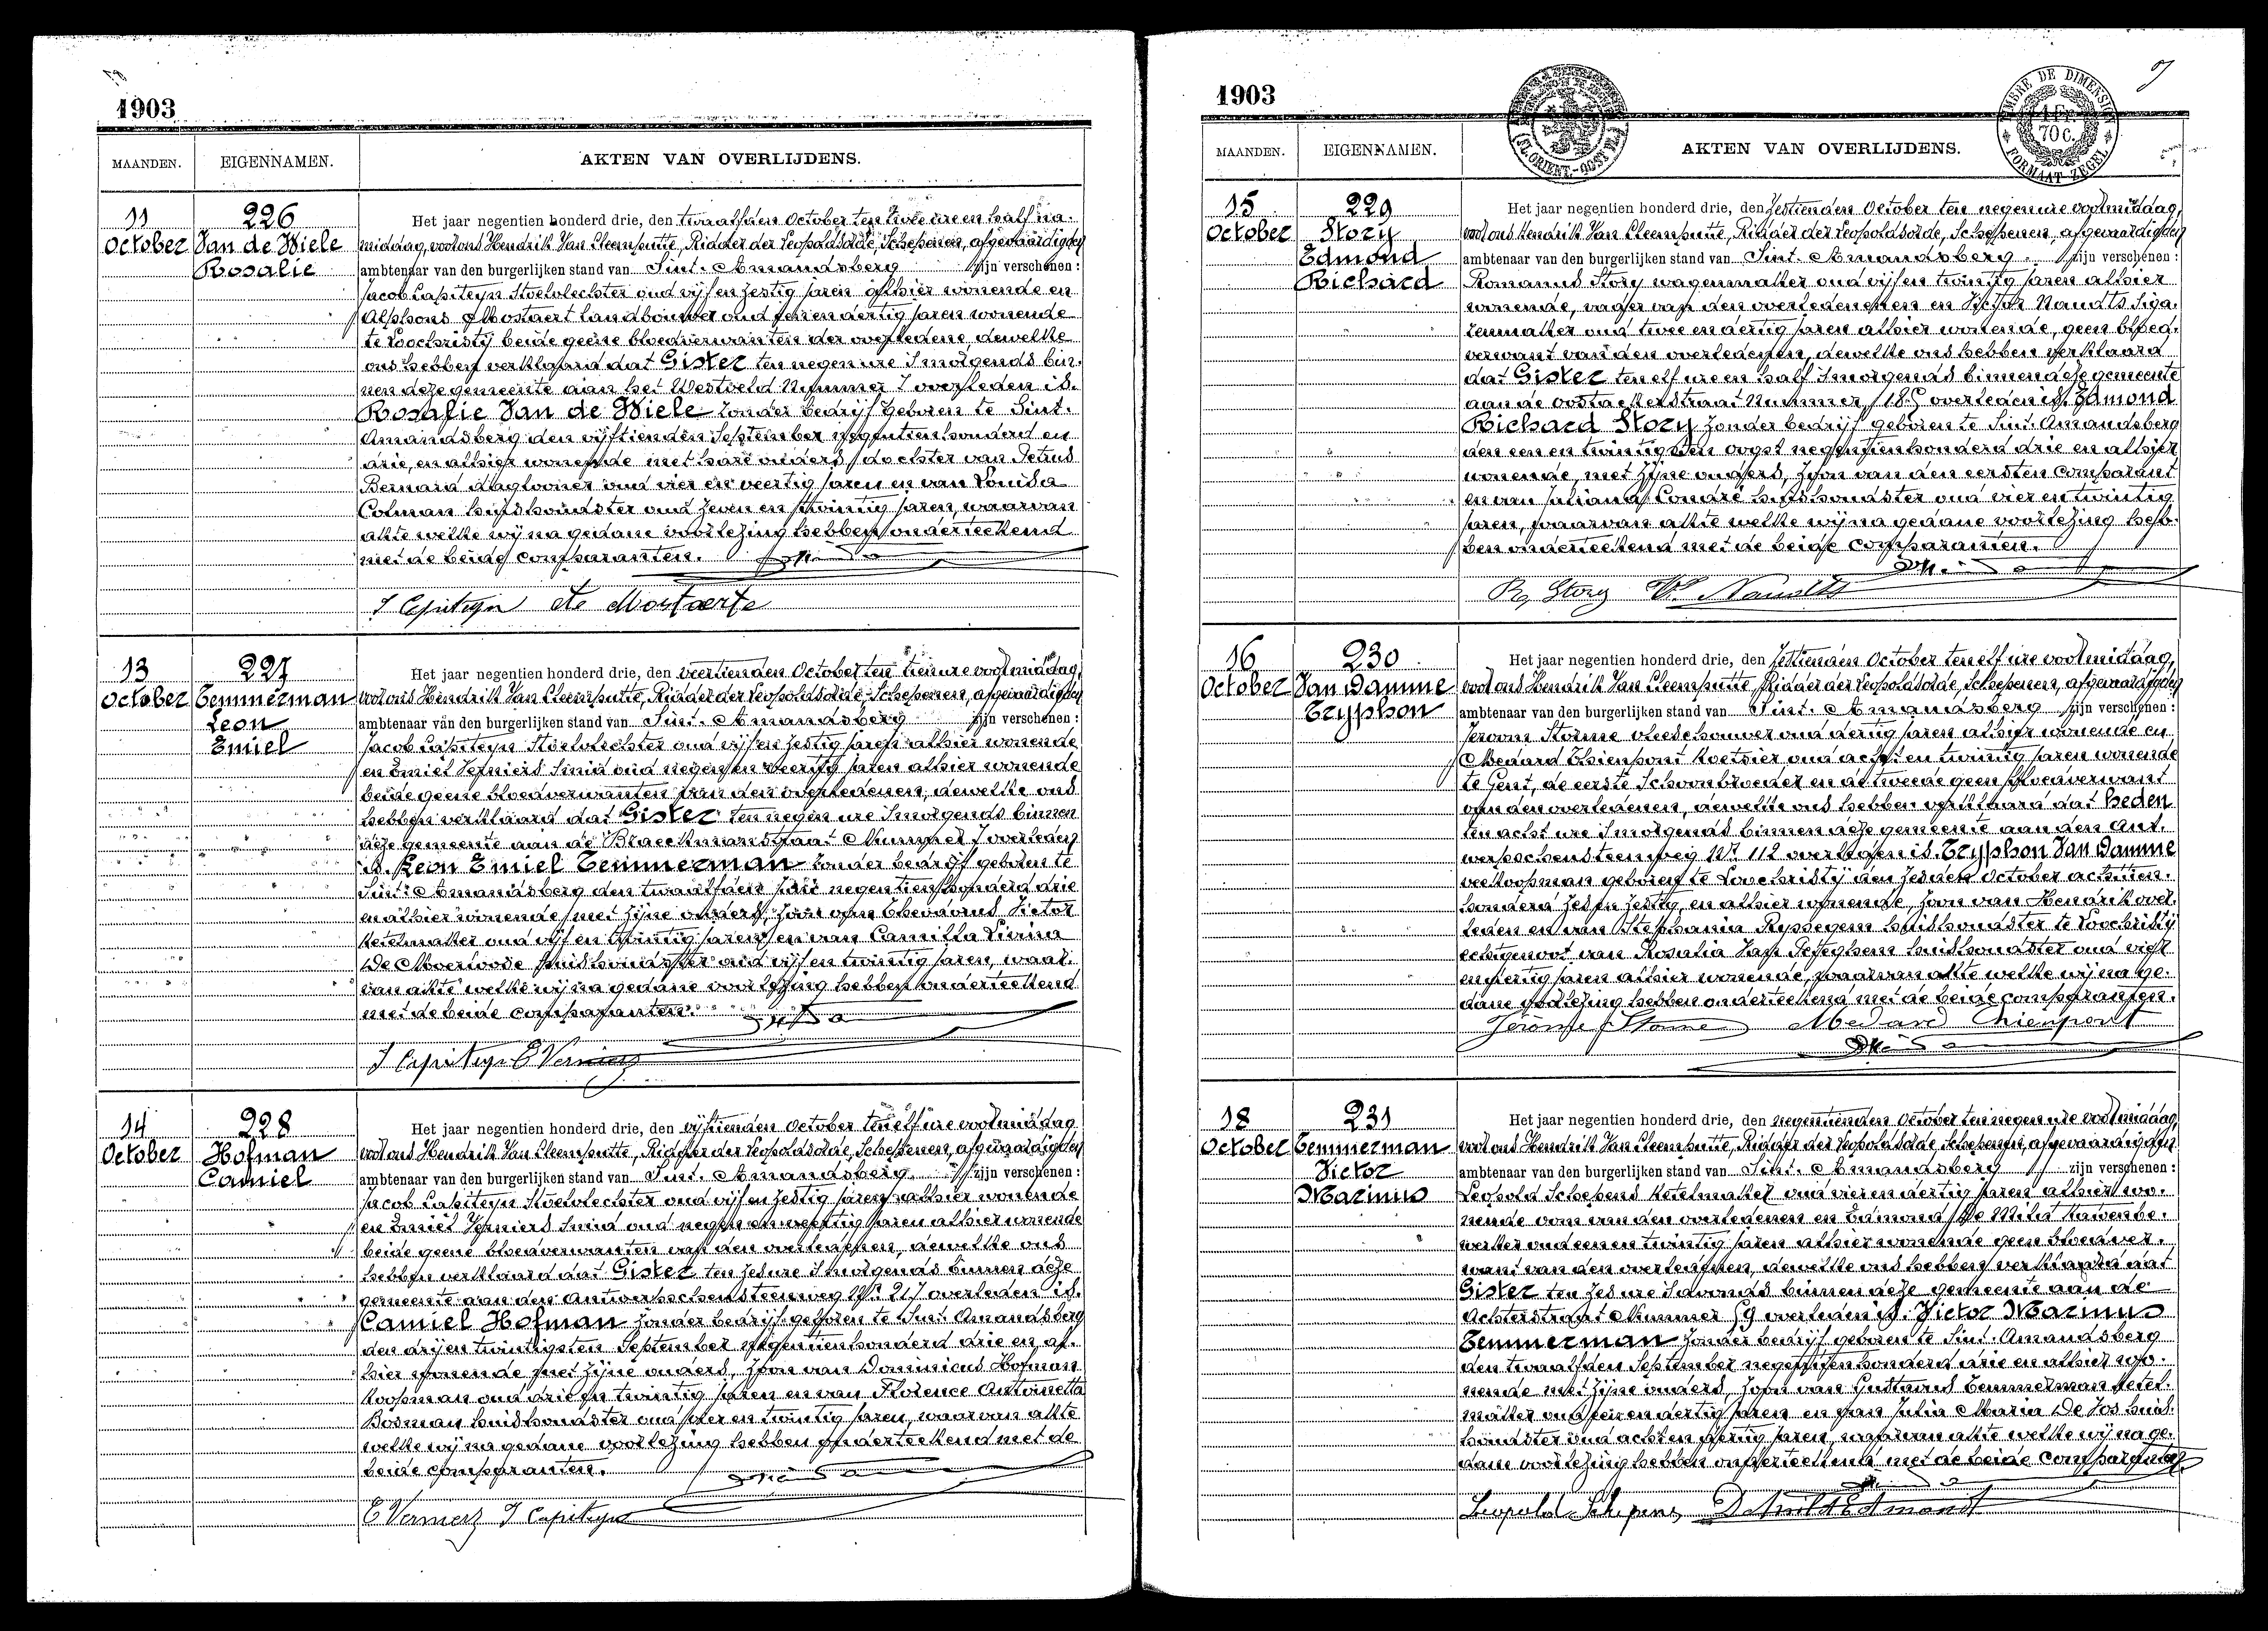 1903
MAANDEN. EIGENNAMEN. AKTEN VAN OVERLIJDENS.
11 October
226
Van de Wiele
Rosalie
Het jaar negentien honderd drie, den twaalfden October ten twee ure en half na-
middag, voor ons Hendrik Van Cleemputte, Ridder der Leopoldsorde, Schepenen, afgevaardigden
ambtenaar van den burgerlijken stand van Sint-Amandsberg zijn verschenen:
Jacob Capiteyn Stoelvlechter oud vijf en zestig jaren alhier wonende en
Alphons Mostaert landbouwer oud en dertig jaren wonende
te Loochristij beide geene bloedverwanten der overledene, dewelke
ons hebben verklaard dat Gister ten negen ure 's morgends bin-
nen deze gemeente aan het Westveld Nummer 7 overleden is.
Rosalie Van de Wiele zonder bedrijf geboren te Sint-
Amandsberg den vijftienden September negentienhonderd en
drie, en alhier wonende met hare ouders, dochter van Petrus
Bernard dagloner oud vier en veertig jaren en van Louisa
Colman huishoudster oud zeven en twintig jaren, waarvan
akte welke wij na gedane voorlezing hebben onderteekend
met de beide comparanten.
J Capiteyn
13 October
227
Temmerman
Leon
Emiel
Het jaar negentien honderd drie, den veertienden October ten tien ure voormiddag,
voor ons Hendrik Van Cleemputte, Ridder der Leopoldsorde, Schepenen, afgevaardigden
ambtenaar van den burgerlijken stand van Sint-Amandsberg zijn verschenen:
Jacob Capiteyn Stoelvlechter oud vijf en zestig jaren alhier wonende
en Emiel Verniers Smid oud negen en veertig jaren alhier wonende
beide geene bloedverwanten van den overledenen, dewelke ons
hebben verklaard dat Gister ten negen ure 's morgends binnen
deze gemeente aan de Braeckmanstraat Nummer 7 overleden
is. Leon Emiel Temmerman zonder bedrijf geboren te
Sint-Amandsberg den twaalfden negentienhonderd drie
en alhier wonende met zijne ouders, zoon van Theodorus Victor
ketelmaker oud vijf en twintig jaren en van Camilla
De Moerloose huishoudster oud vijf en twintig jaren, waar-
van akte welke wij na gedane voorlezing hebben onderteekend
met de beide comparanten.
J Capiteyn E Verniers
14 October
228
Hofman
Camiel
Het jaar negentien honderd drie, den vijftienden October ten elf ure voormiddag
voor ons Hendrik Van Cleemputte, Ridder der Leopoldsorde, Schepenen, afgevaardigden
ambtenaar van den burgerlijken stand van Sint-Amandsberg zijn verschenen:
Jacob Capiteyn Stoelvlechter oud vijf en zestig jaren alhier wonende
en Emiel Verniers Smid oud negen en veertig jaren alhier wonende
beide geene bloedverwanten van den overledenen, dewelke ons
hebben verklaard dat Gister ten zes ure 's morgends binnen deze
gemeente aan den Antwerpschensteenweg Nr 217 overleden is.
Camiel Hofman zonder bedrijf geboren te Sint-Amandsberg
den drij en twintigsten September negentienhonderd drie en al-
hier wonende met zijne ouders, zoon van Dominicus Hofman
koopman oud drie en twintig jaren en van Florence Antoinetta
Bosman huishoudster oud vier en twintig jaren, waarvan akte
welke wij na gedane voorlezing hebben onderteekend met de
beide comparanten.
E Verniers J Capiteyn
1903
TIMBRE DE DIMENSION
1 Fr.
70 c.
FORMAAT ZEGEL
MAANDEN. EIGENNAMEN. AKTEN VAN OVERLIJDENS.
15 October
229
Story
Edmond
Richard
Het jaar negentien honderd drie, den zestienden October ten negen ure voormiddag,
voor ons Hendrik Van Cleemputte, Ridder der Leopoldsorde, Schepenen, afgevaardigden
ambtenaar van den burgerlijken stand van Sint-Amandsberg zijn verschenen:
Romanus Story wagenmaker oud vijf en twintig jaren alhier
wonende, vader van den overledenen en Victor Naudts Siga-
renmaker oud twee en dertig jaren alhier wonende, geen bloed-
verwant van den overledenen, dewelke ons hebben verklaard
dat Gister ten elf ure en half 's morgends binnen deze gemeente
aan de Oostackerstraat Nummer overleden is. Edmond
Richard Story zonder bedrijf geboren te Sint-Amandsberg
den een en twintigsten oogst negentienhonderd drie en alhier
wonende, met zijne ouders, zoon van den eersten comparant
en van Juliana Coudré huishoudster oud vier en twintig
jaren, waarvan akte welke wij na gedane voorlezing heb-
ben onderteekend met de beide comparanten.
Story Naudts
16 October
230
Van Damme
Tryphon
Het jaar negentien honderd drie, den zestienden October ten elf ure voormidaag,
voor ons Hendrik Van Cleemputte, Ridder der Leopoldsorde, Schepenen, afgevaardigden
ambtenaar van den burgerlijken stand van Sint-Amandsberg zijn verschenen:
Jeroom Storme vleeschouwer oud dertig jaren alhier wonende en
Medard Thienpont Koetsier oud acht en twintig jaren wonende
te Gent, de eerste Schoonbroeder en de tweede geen bloedverwant
van den overledenen, dewelke ons hebben verklaard dat heden
ten acht ure 's morgends binnen deze gemeente aan den Ant-
werpschensteenweg Nr 112 overleden is. Tryphon Van Damme
veekoopman geboren te Loochristij den zesden October achttien-
honderd zes en zestig, en alhier wonende, zoon van Hendrik over-
leden en van Stephania Ryssegem huishoudster te Loochristij
echtgenoot van Rosalia Van Peteghem huishoudster oud vier
en dertig jaren alhier wonende, waarvan akte welke wij na ge-
dane voorlezing hebben onderteekend met de beide comparanten.
Jerome Storme Medard Thienpont
18 October
231
Temmerman
Victor
Marinus
Het jaar negentien honderd drie, den negentienden October ten negen ure voormiddag,
voor ons Hendrik Van Cleemputte, Ridder der Leopoldsorde, Schepenen, afgevaardigden
ambtenaar van den burgerlijken stand van Sint-Amandsberg zijn verschenen:
Leopold Schepens Ketelmaker oud vier en dertig jaren alhier wo-
nende oom van den overledenen en Edmond De Mildt
werker oud een en twintig jaren alhier wonende geen bloedver-
want van den overledenen, dewelke ons hebben verklaard dat
Gister ten zes ure 's avonds binnen deze gemeente aan de
Achterstraat Nummer 59 overleden is. Victor Marinus
Temmerman zonder bedrijf geboren te Sint-Amandsberg
den twaalfden September negentienhonderd drie en alhier wo-
nende met zijne ouders, zoon van Gustavus Temmerman ketel-
maker oud en dertig jaren en van Julia Maria De Vos huis-
houdster oud acht en jaren, waarvan akte welke wij na ge-
dane voorlezing hebben onderteekend met de beide comparanten
Leopold Schepens De Mildt Edmond